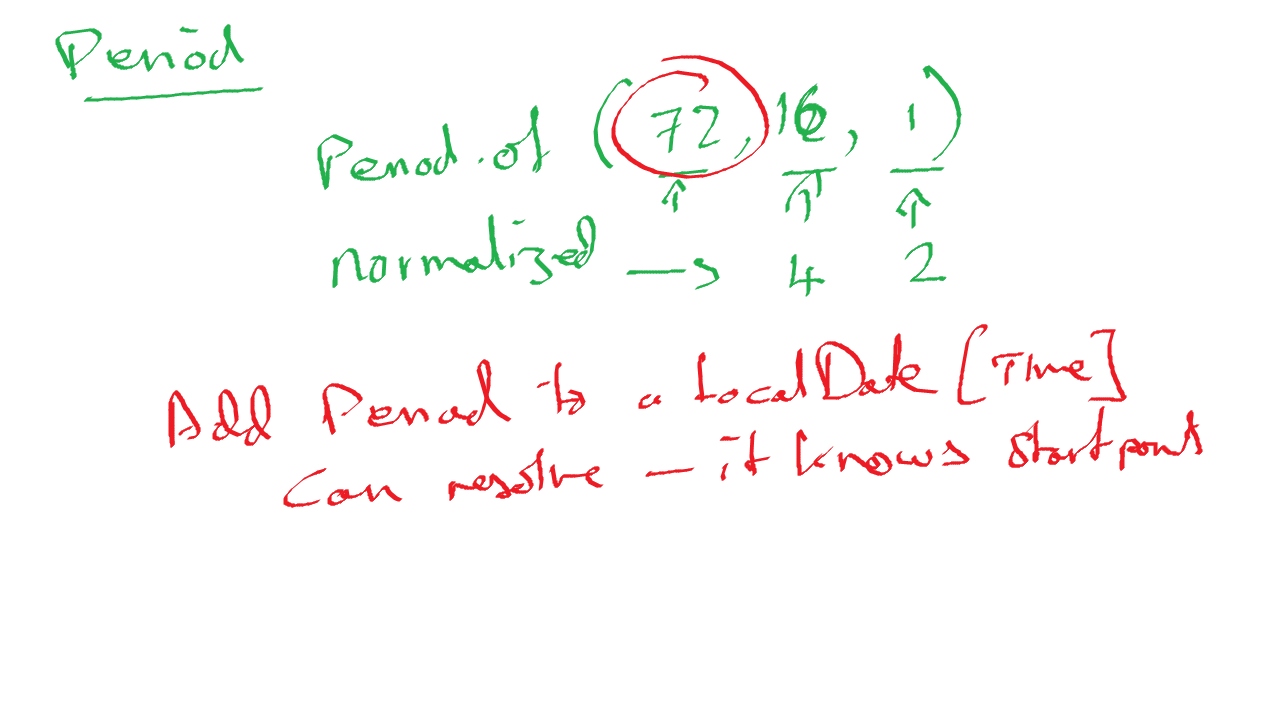 Period
Period.of (72, 16, 1)
normalized → 4 2
Add Period to a LocalDate[Time]
Can resolve – it knows start point